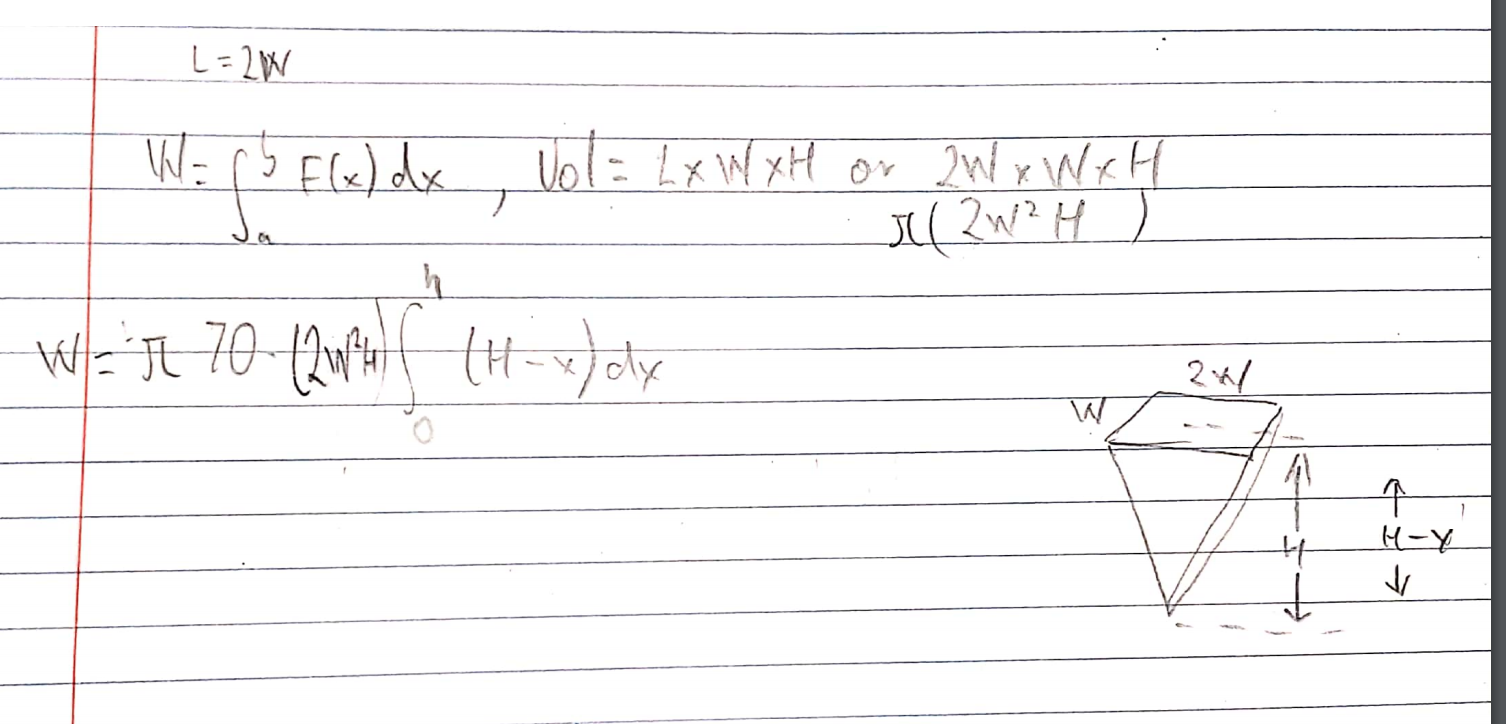 L = 2W
W = ∫ₐᵇ F(x) dx , Vol = L x W x H or 2W x W x H
π( 2W² H )
W = π 70 · (2W²H) ∫₀ʰ (H - x) dx
2W
W
H
H - x